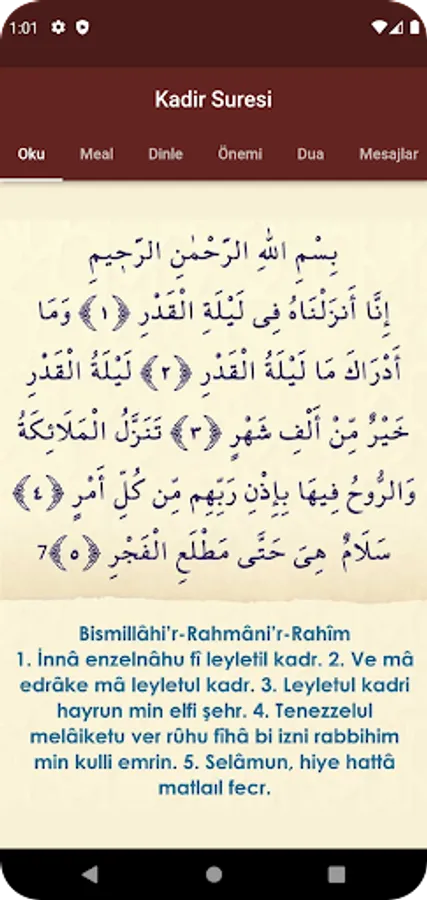 1:01
Kadir Suresi
Oku Meal Dinle Önemi Dua Mesajlar
بِسْمِ اللهِ الرَّحْمٰنِ الرَّحِيمِ
إِنَّا أَنزَلْنَاهُ فِى لَيْلَةِ الْقَدْرِ ﴿١﴾ وَمَا
أَدْرَاكَ مَا لَيْلَةُ الْقَدْرِ ﴿٢﴾ لَيْلَةُ الْقَدْرِ
خَيْرٌ مِّنْ أَلْفِ شَهْرٍ ﴿٣﴾ تَنَزَّلُ الْمَلَائِكَةُ
وَالرُّوحُ فِيهَا بِإِذْنِ رَبِّهِم مِّن كُلِّ أَمْرٍ ﴿٤﴾
سَلَامٌ هِىَ حَتَّى مَطْلَعِ الْفَجْرِ ﴿٥﴾ 7
Bismillâhi'r-Rahmâni'r-Rahîm
1. İnnâ enzelnâhu fî leyletil kadr. 2. Ve mâ
edrâke mâ leyletul kadr. 3. Leyletul kadri
hayrun min elfi şehr. 4. Tenezzelul
melâiketu ver rûhu fîhâ bi izni rabbihim
min kulli emrin. 5. Selâmun, hiye hattâ
matlaıl fecr.